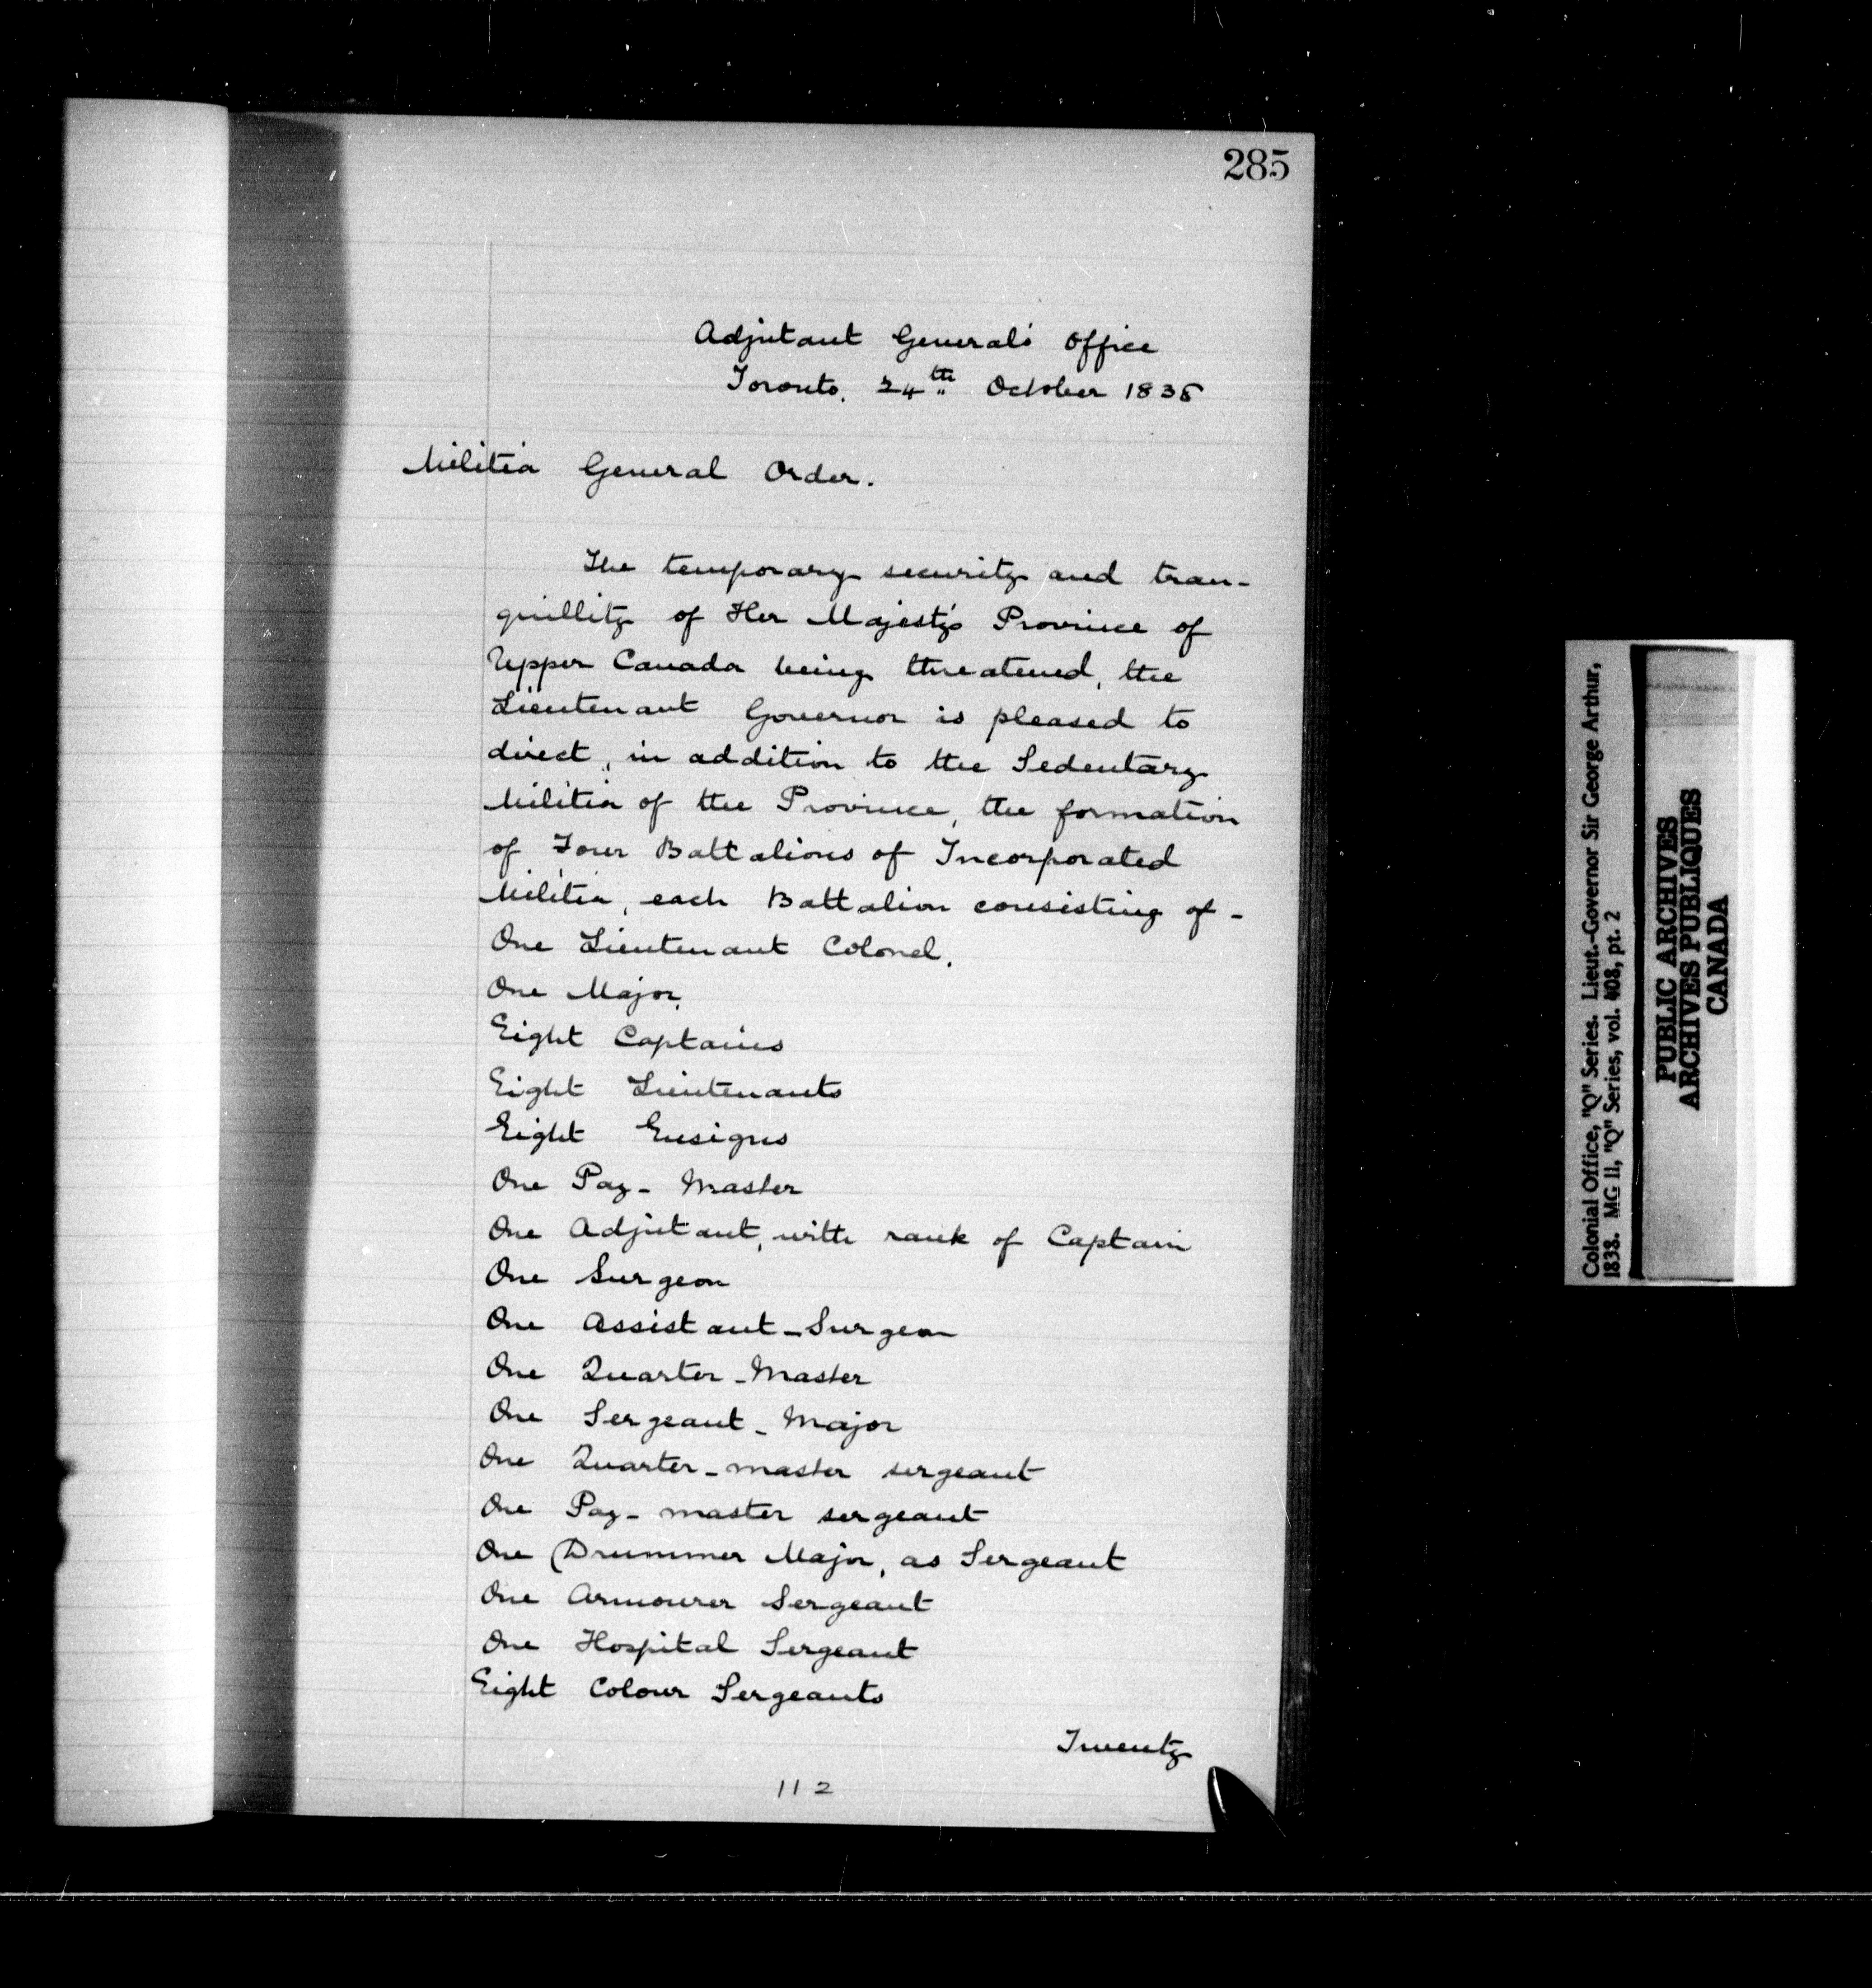 285
Adjutant General's Office
Toronto. 24th October 1838
Militia General Order.
The temporary security and tran-
quillity of Her Majesty's Province of
Upper Canada being threatened, the
Lieutenant Governor is pleased to
direct, in addition to the Sedentary
Militia of the Province, the formation
of Four Battalions of Incorporated
Militia, each Battalion consisting of -
One Lieutenant Colonel.
One Major.
Eight Captains
Eight Lieutenants
Eight Ensigns
One Pay-Master
One Adjutant, with rank of Captain
One Surgeon
One Assistant-Surgeon
One Quarter-Master
One Sergeant-Major
One Quarter-master sergeant
One Pay-master sergeant
One Drummer Major, as Sergeant
One Armourer Sergeant
One Hospital Sergeant
Eight Colour Sergeants
Twenty
112
Colonial Office, "Q" Series. Lieut.-Governor Sir George Arthur,
1838. MG 11, "Q" Series, vol. 408, pt. 2
PUBLIC ARCHIVES
ARCHIVES PUBLIQUES
CANADA